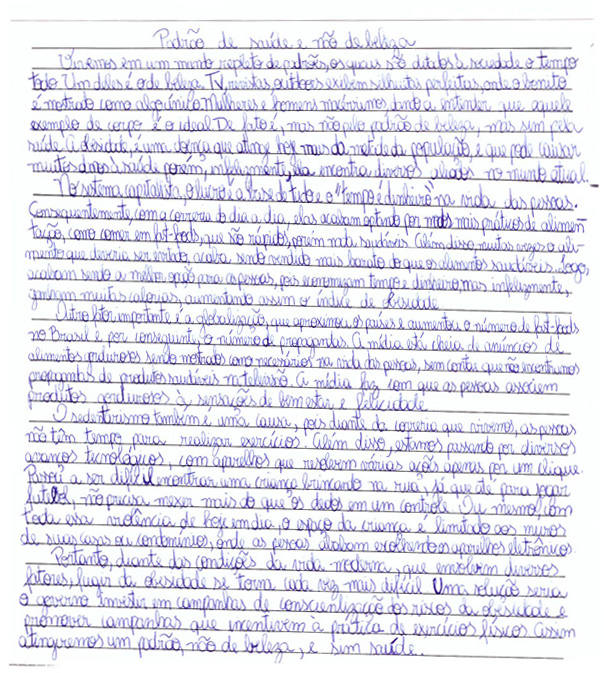 Padrão de saúde e não de beleza
Vivemos em um mundo repleto de padrões, os quais são ditados à sociedade o tempo
todo. Um deles é o de beleza. TV, revistas, outdoors exibem silhuetas perfeitas, onde o bonito
é mostrado como algo único. Mulheres e homens magérrimos dando a entender que aquele
exemplo de corpo é o ideal. De fato é, mas não pelo padrão de beleza, mas sim pela
saúde. A obesidade, é uma doença que atinge hoje mais da metade da população, e que pode causar
muitos danos à saúde porém, infelizmente, ela encontra diversos aliados no mundo atual.
No sistema capitalista, o lucro é a base de tudo e o "tempo é dinheiro" na vida das pessoas.
Consequentemente, com a correria do dia a dia, elas acabam optando por modos mais práticos de alimen
tação, como comer em fast-foods, que são rápidos, porém nada saudáveis. Além disso, muitas vezes o ali-
mento que deveria ser evitado, acaba sendo vendido mais barato do que os alimentos saudáveis. Logo,
acabam sendo a melhor opção para as pessoas, pois economizam tempo e dinheiro, mas infelizmente,
ganham muitas calorias, aumentando assim o índice de obesidade.
Outro fator importante é a globalização, que aproximou os países e aumentou o número de fast-foods
no Brasil e por consequinte, o número de propagandas. A mídia está cheia de anúncios de
alimentos gordurosos sendo mostrados como necessários na vida das pessoas, sem contar que não encontramos
propagandas de produtos saudáveis na televisão. A mídia faz com que as pessoas associem
produtos gordurosos à sensações de bem estar e felicidade.
O sedentarismo também é uma causa, pois diante da correria que vivemos, as pessoas
não têm tempo para realizar exercícios. Além disso, estamos passando por diversos
avanços tecnológicos, com aparelhos que resolvem várias ações apenas por um clique.
Passou a ser difícil encontrar uma criança brincando na rua, já que até para jogar
futebol, não precisa mexer mais do que os dedos em um controle. E mesmo, com
toda essa violência de hoje em dia, o espaço da criança é limitado aos muros
de suas casas ou condomínios, onde as pessoas acabam escolhendo os aparelhos eletrônicos.
Portanto, diante das condições da vida moderna, que envolvem diversos
fatores, fugir da obesidade se torna cada vez mais difícil. Uma solução seria
o governo investir em campanhas de conscientização dos riscos da obesidade e
promover campanhas que incentivem à prática de exercícios físicos. Assim
atingiremos um padrão, não de beleza, e sim saúde.